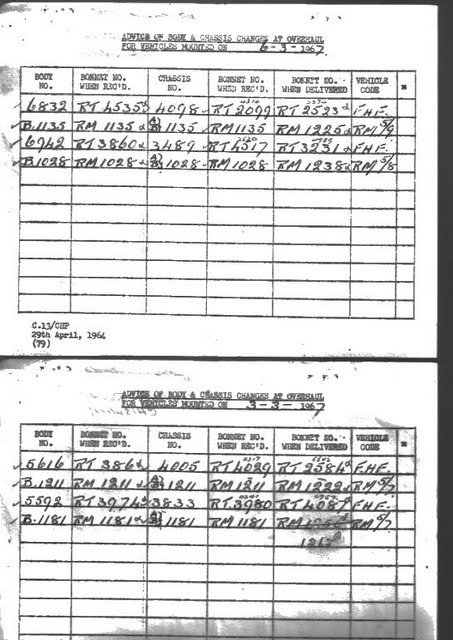 ADVICE OF BODY & CHASSIS CHANGES AT OVERHAUL
FOR VEHICLES MOUNTED ON 6-3-1967
BODY NO. BONNET NO. WHEN REC'D. CHASSIS NO. BONNET NO. WHEN REC'D. BONNET NO. WHEN DELIVERED VEHICLE CODE
6832 RT 4535 4098 RT 2099 RT 2523 F.H.F.
B.1135 RM 1135 B 1135 RM 1135 RM 1225 RM 5/9
6942 RT 3860 3489 RT 4517 RT 3231 F.H.F.
B.1028 RM 1028 B 1028 RM 1028 RM 1238 RM 5/8
C.13/CHP
29th April, 1964
(79)
ADVICE OF BODY & CHASSIS CHANGES AT OVERHAUL
FOR VEHICLES MOUNTED ON 3-3-1967
BODY NO. BONNET NO. WHEN REC'D. CHASSIS NO. BONNET NO. WHEN REC'D. BONNET NO. WHEN DELIVERED VEHICLE CODE
5616 RT 386 4005 RT 4029 RT 2584 F.H.F.
B.1211 RM 1211 B 1211 RM 1211 RM 1229 RM 5/7
5592 RT 3974 3833 RT 3980 RT 4087 F.H.F.
B.1181 RM 1181 B 1181 RM 1181 RM RM 5/7